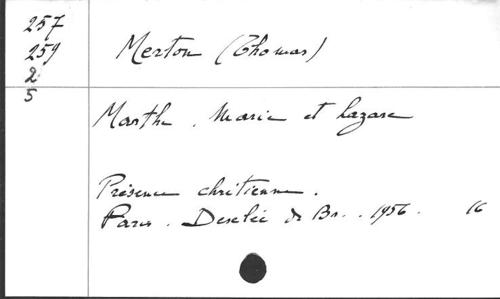 257
259
2
5
Merton (Thomas)
Marthe, Marie et Lazare
Présence chrétienne.
Paris. Desclée de Br.. 1956. 16